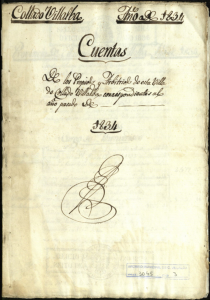 Collado Villalba
Año de 1834
Cuentas
De los Propios, y Arbitrios de esta Villa
de Collado Villalba correspondientes al
año pasado de
1834
3